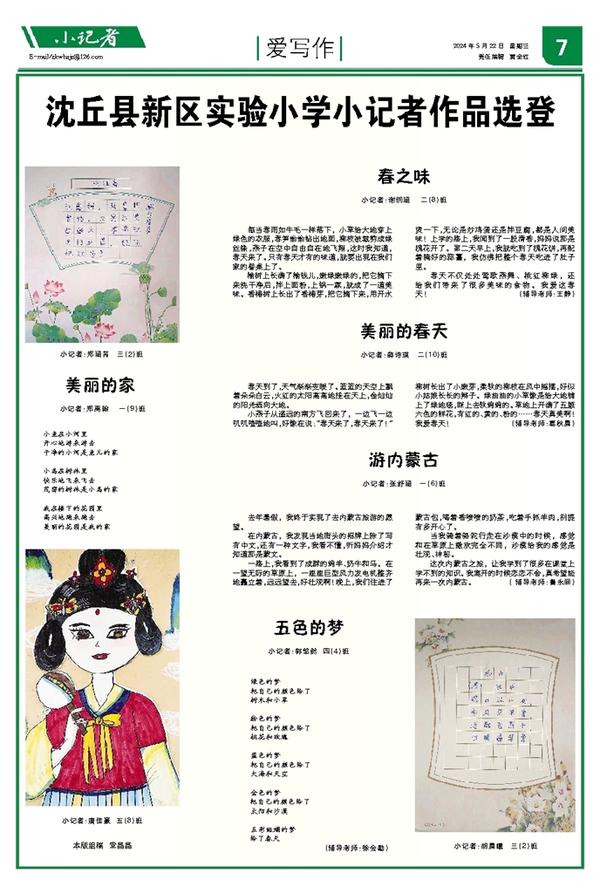 小记者
E-mail/zkwbxjz@126.com
爱写作
2024年5月22日 星期三
责任编辑 黄金红
7
沈丘县新区实验小学小记者作品选登
小记者:郑涵茜 三(2)班
美丽的家
小记者:郑禹翰 一(9)班
小鱼在小河里
开心地游来游去
干净的小河是鱼儿的家
小鸟在树林里
快乐地飞来飞去
茂密的树林是小鸟的家
我在楼下的花园里
高兴地跑来跑去
美丽的花园是我的家
小记者:唐佳豪 五(8)班
本版组稿 常晶晶
春之味
二(8)班
每当春雨如牛毛一样落下，小草给大地穿上
绿色的衣服，春笋偷偷钻出地面，柳枝被裁剪成绿
丝绦，燕子在空中自由自在地飞翔，这时我知道，
春天来了。只有春天才有的味道，就要出现在我们
家的餐桌上了。
榆树上长满了榆钱儿，嫩绿嫩绿的，把它摘下
来洗干净后，拌上面粉，上锅一蒸，就成了一道美
味。香椿树上长出了香椿芽，把它摘下来，用开水
烫一下，无论是炒鸡蛋还是拌豆腐，都是人间美
味！上学的路上，我闻到了一股清香，妈妈说那是
槐花开了。第二天早上，我就吃到了槐花饼，再配
着稀好的蒜薹，我仿佛把整个春天吃进了肚子
里。
春天不仅处处莺歌燕舞、桃红柳绿，还
给我们带来了很多美味的食物。我爱这春
天！
(辅导老师:王静)
美丽的春天
小记者:薛诗琪 二(10)班
春天到了，天气渐渐变暖了。蓝蓝的天空上飘
着朵朵白云，火红的太阳高高地挂在天上，金灿灿
的阳光洒向大地。
小燕子从遥远的南方飞回来了，一边飞一边
叽叽喳喳地叫，好像在说：“春天来了，春天来了！”
柳树长出了小嫩芽，柔软的柳枝在风中摇摆，好似
小姑娘长长的辫子。绿油油的小草像是给大地铺
上了绿地毯，踩上去软绵绵的。草地上开满了五颜
六色的鲜花，有红的、黄的、粉的……春天真美啊！
我爱春天！
(辅导老师:葛秋晨)
游内蒙古
小记者:张舒涵 一(6)班
去年暑假，我终于实现了去内蒙古旅游的愿
望。
在内蒙古，我发现当地街头的招牌上除了写
有中文，还有一种文字，我看不懂，听妈妈介绍才
知道那是蒙文。
一路上，我看到了成群的绵羊、奶牛和马。在
一望无际的草原上，一座座巨型风力发电机整齐
地矗立着，远远望去，好壮观啊！晚上，我们住进了
蒙古包，喝着香喷喷的奶茶，吃着手抓羊肉，别提
有多开心了。
当我骑着骆驼行走在沙漠中的时候，感觉
和在草原上撒欢完全不同，沙漠给我的感觉是
壮观、神秘。
这次内蒙古之旅，让我学到了很多在课堂上
学不到的知识。我离开的时候恋恋不舍，真希望能
再来一次内蒙古。
五色的梦
四(4)班
绿色的梦
把自己的颜色给了
树木和小草
粉色的梦
把自己的颜色给了
桃花和玫瑰
蓝色的梦
把自己的颜色给了
大海和天空
金色的梦
把自己的颜色给了
太阳和沙漠
五彩斑斓的梦
给了春天
(辅导老师:徐会勤)
三(2)班